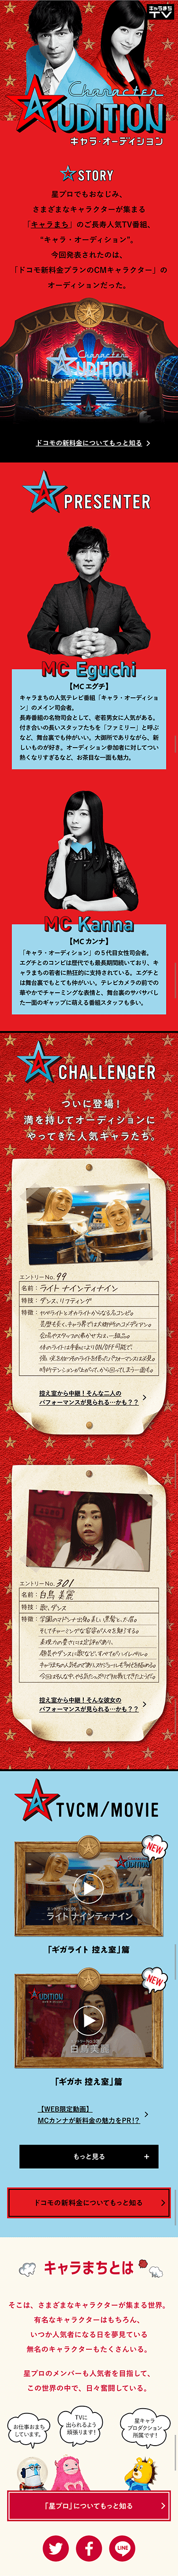 キャラまち
TV
Character
AUDITION
キャラ・オーディション
STORY
星プロでもおなじみ、
さまざまなキャラクターが集まる
「キャラまち」のご長寿人気TV番組、
“キャラ・オーディション”。
今回発表されたのは、
「ドコモ新料金プランのCMキャラクター」の
オーディションだった。
Character
AUDITION
ドコモの新料金についてもっと知る
PRESENTER
MC Eguchi
【MC エグチ】
キャラまちの人気テレビ番組「キャラ・オーディション」のメイン司会者。
長寿番組の名物司会として、老若男女に人気がある。
付き合いの長いスタッフたちを「ファミリー」と呼ぶ
など、舞台裏でも仲がいい。大御所でありながら、新
しいものが好き。オーディション参加者に対してつい
熱くなりすぎるなど、お茶目な一面も魅力。
MC Kanna
【MC カンナ】
「キャラ・オーディション」の5代目女性司会者。
エグチとのコンビは歴代でも最長期間続いており、キ
ャラまちの若者に熱狂的に支持されている。エグチと
は舞台裏でもとても仲がいい。テレビカメラの前での
華やかでチャーミングな表情と、舞台裏のサバサバし
た一面のギャップに萌える番組スタッフも多い。
CHALLENGER
ついに登場！
満を持してオーディションに
やってきた人気キャラたち。
エントリーNo. 99
名前：ライト ナインティナイン
特技：ダンス、リフティング
特徴：
控え室から中継！そんな二人の
パフォーマンスが見られる…かも？？
エントリーNo. 301
名前：白鳥 美麗
特技：歌、ダンス
特徴：
控え室から中継！そんな彼女の
パフォーマンスが見られる…かも？？
TVCM/MOVIE
NEW
AUDITION
ライト ナインティナイン
「ギガライト 控え室」篇
NEW
AUDITION
白鳥美麗
「ギガホ 控え室」篇
【WEB限定動画】
MCカンナが新料金の魅力をPR！？
もっと見る
ドコモの新料金についてもっと知る
キャラまちとは
そこは、さまざまなキャラクターが集まる世界。
有名なキャラクターはもちろん、
いつか人気者になる日を夢見ている
無名のキャラクターもたくさんいる。
星プロのメンバーも人気者を目指して、
この世界の中で、日々奮闘している。
お仕事おまち
しています。
TVに
出られるよう
頑張ります！
星キャラ
プロダクション
所属です！
「星プロ」についてもっと知る
LINE